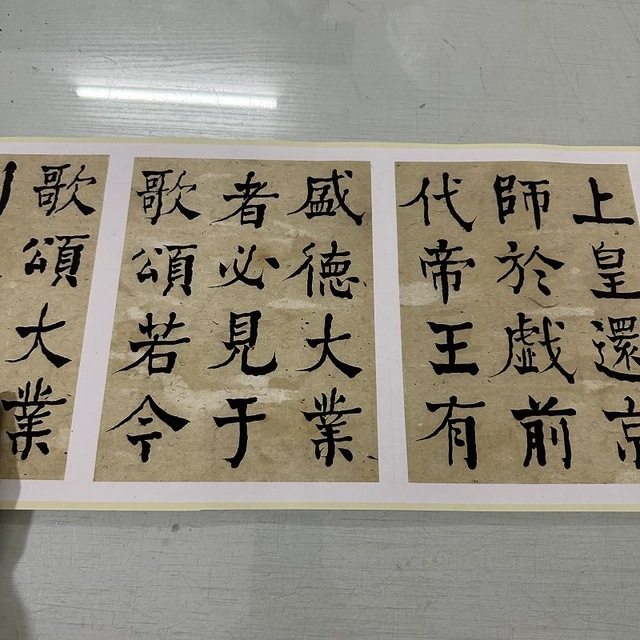 上皇還京
師於戲前
代帝王有
盛德大業
者必見于
歌頌若今
歌頌大業